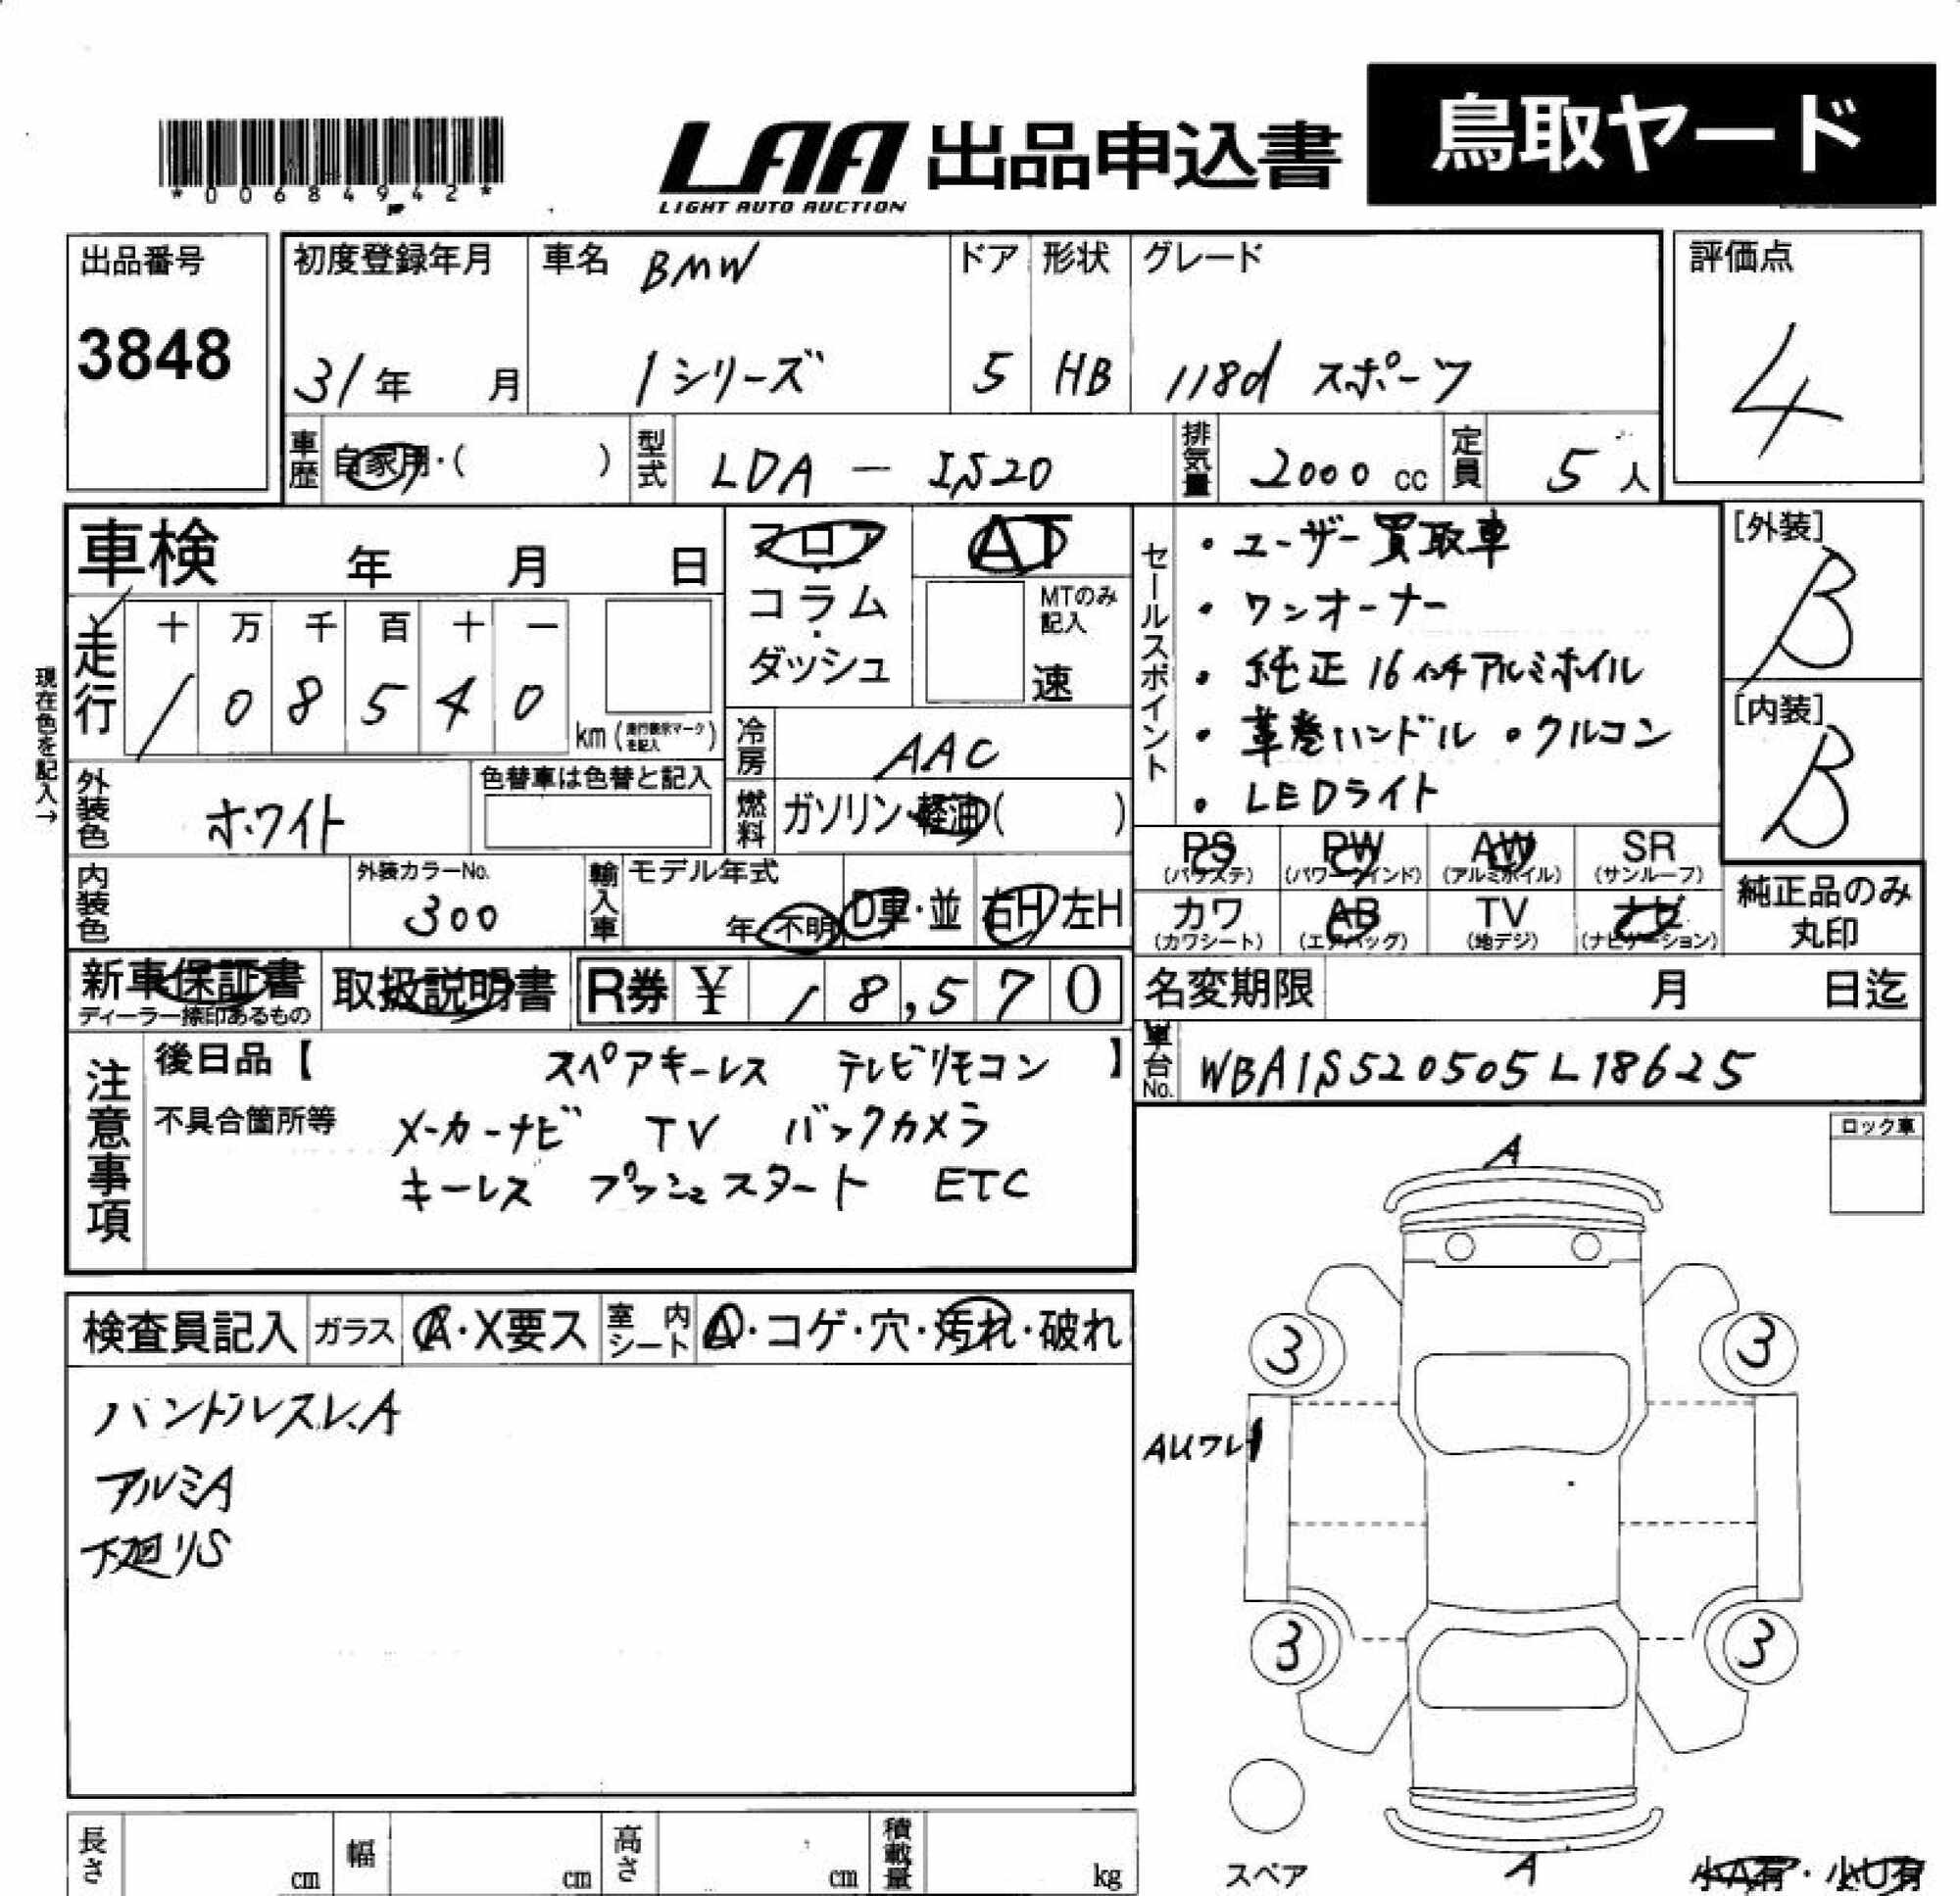 *00684942*
LAA 出品申込書
LIGHT AUTO AUCTION
鳥取ヤード
出品番号
3848
初度登録年月
31年 月
車名 BMW
1シリーズ
ドア
5
形状
HB
グレード
118d スポーツ
評価点
4
車歴 自家用・( )
型式 LDA - 1S20
排気量 2000 cc
定員 5人
車検 年 月 日
フロア・コラム・ダッシュ
AT
MTのみ記入
速
セールスポイント
・ユーザー買取車
・ワンオーナー
・純正16インチアルミホイル
・革巻ハンドル ・クルコン
・LEDライト
[外装]
B
[内装]
B
現在色を記入→
走行
十 万 千 百 十 一
1 0 8 5 4 0
km (走行表示マークを記入)
冷房 AAC
外装色 ホワイト
色替車は色替と記入
燃料 ガソリン・軽油( )
PS (パワステ)
PW (パワーウインド)
AW (アルミホイル)
SR (サンルーフ)
内装色
外装カラーNo.
300
輸入車
モデル年式
年・不明
D車・並
右H 左H
カワ (カワシート)
AB (エアバッグ)
TV (地デジ)
ナビ (ナビゲーション)
純正品のみ
丸印
新車保証書
ディーラー捺印あるもの
取扱説明書
R券 ¥ 18,570
名変期限 月 日迄
車台No. WBA1S520505L18625
注意事項
後日品【 スペアキーレス テレビリモコン 】
不具合箇所等 メーカーナビ TV バックカメラ
キーレス プッシュスタート ETC
ロック車
検査員記入
ガラス A・X要ス
室内シート A・コゲ・穴・汚れ・破れ
ハンドルスレ、A
アルミA
下廻りS
A
3
3
3
3
A
スペア
小A有・小U有
長さ cm
幅 cm
高さ cm
積載量 kg